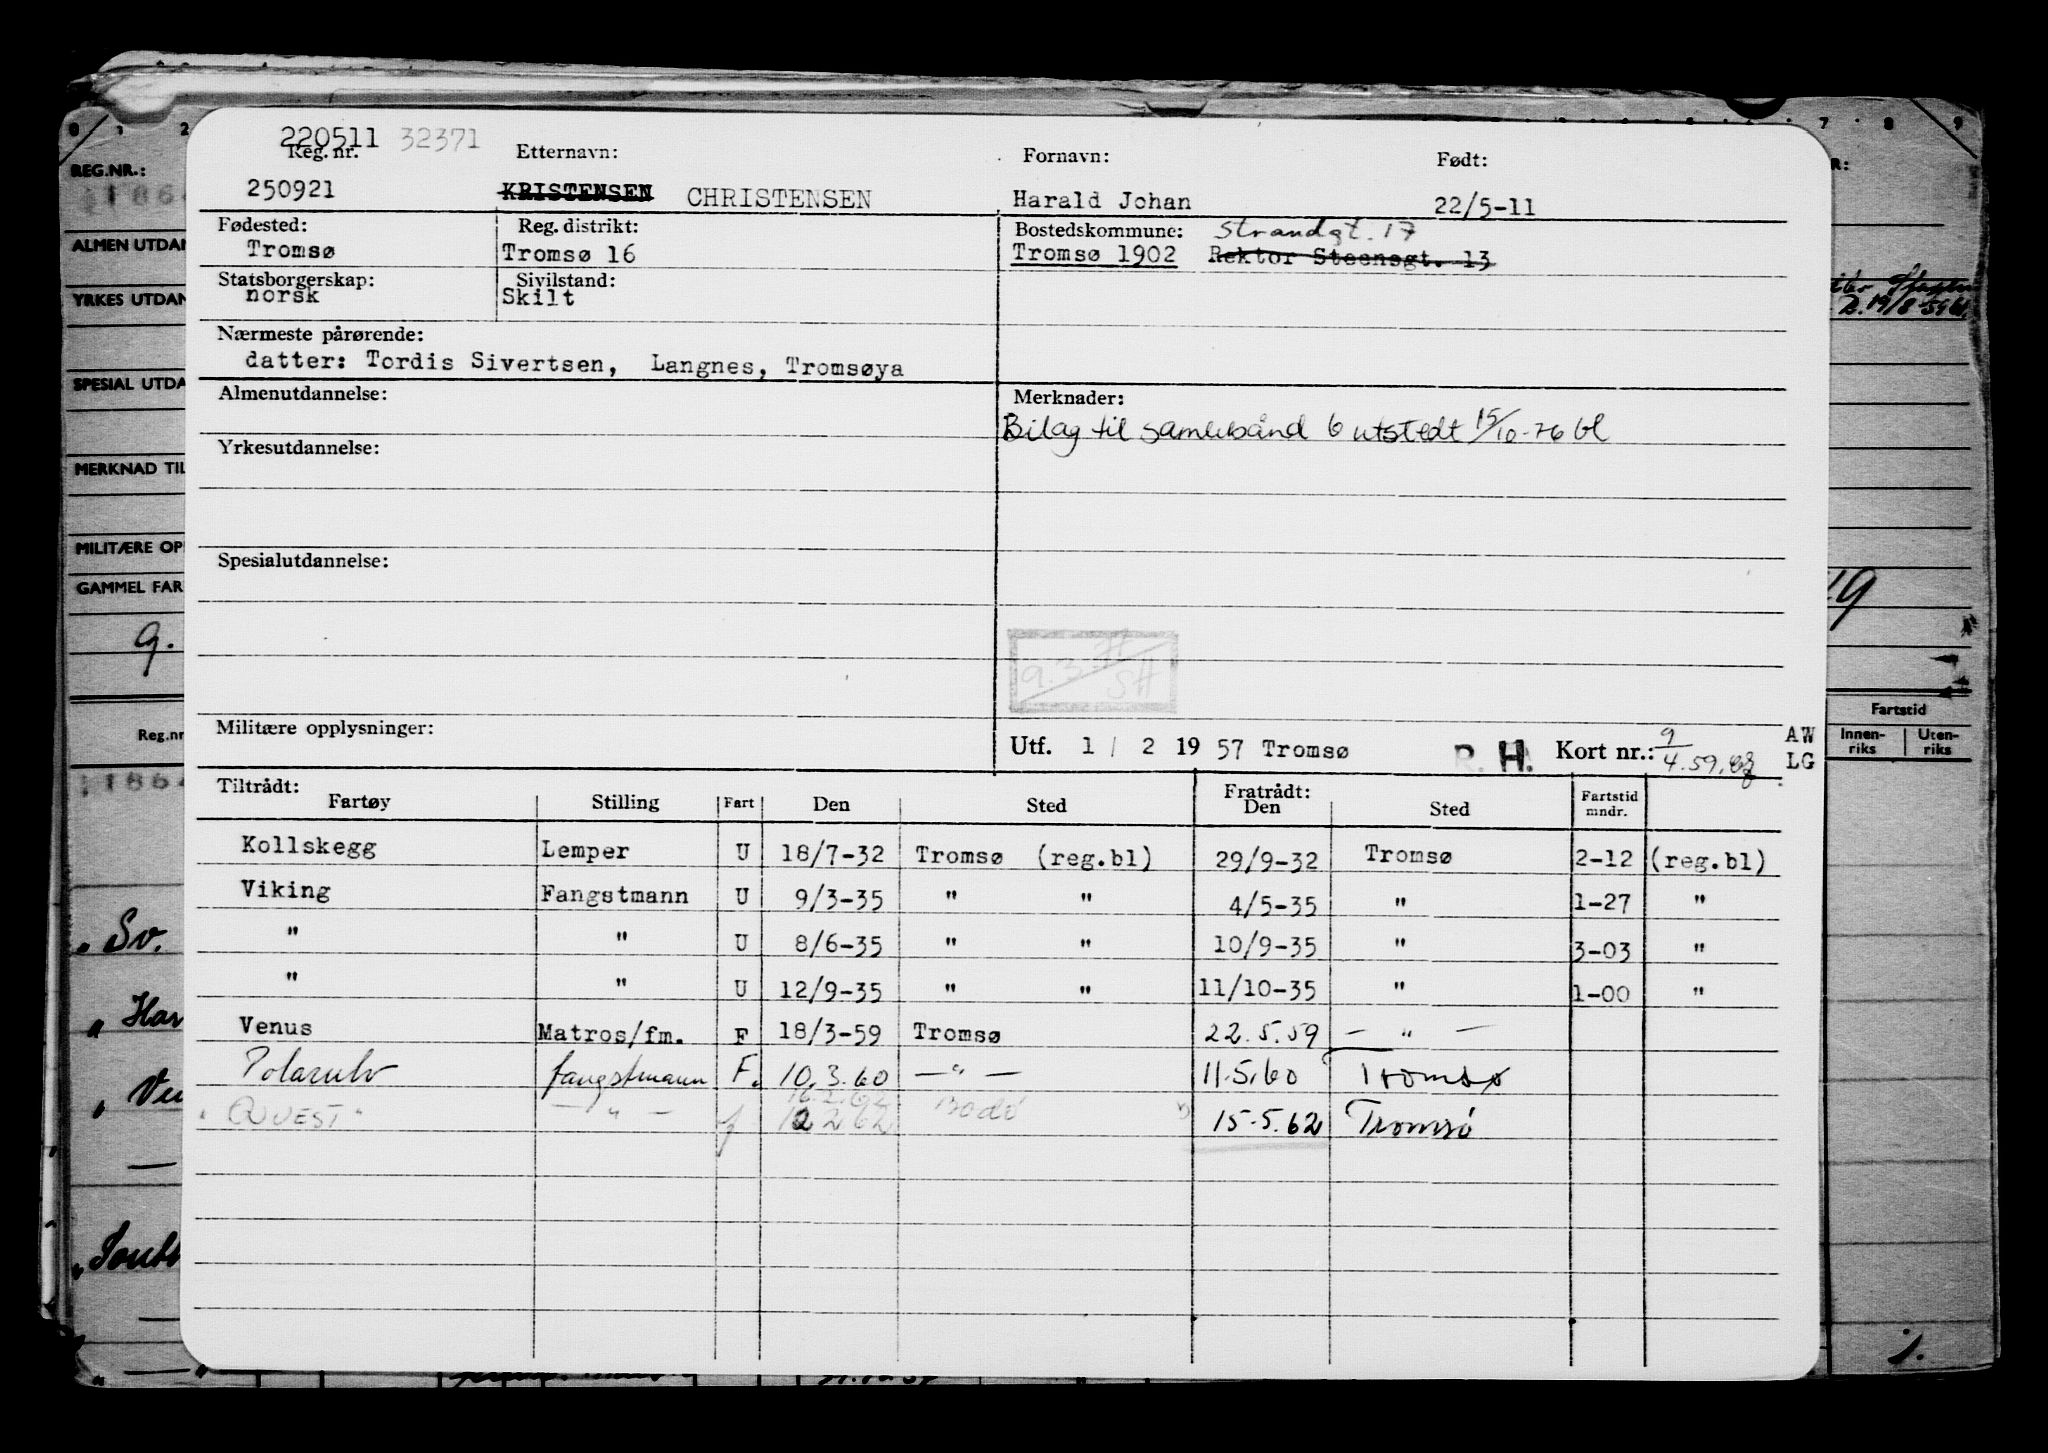 220511 32371
Reg. nr. Etternavn: Fornavn: Født:
250921 KRISTENSEN CHRISTENSEN Harald Johan 22/5-11
Fødested: Reg. distrikt: Bostedskommune: Strandgt. 17
Tromsø Tromsø 16 Tromsø 1902 Rektor Steensgt. 13
Statsborgerskap: Sivilstand:
norsk Skilt
Nærmeste pårørende:
datter: Tordis Sivertsen, Langnes, Tromsøya
Almenutdannelse: Merknader:
Bilag til samlebånd 6 utstedt 15/10-76 bl
Yrkesutdannelse:
Spesialutdannelse:
9.3.71/SH
Militære opplysninger:
Utf. 1 / 2 19 57 Tromsø R. H. Kort nr.: 9/4.59.
AW
LG
Tiltrådt: Fratrådt:
Fartøy Stilling Fart Den Sted Den Sted Fartstid mndr.
Kollskegg Lemper U 18/7-32 Tromsø (reg.bl) 29/9-32 Tromsø 2-12 (reg.bl)
Viking Fangstmann U 9/3-35 " " 4/5-35 " 1-27 "
" " U 8/6-35 " " 10/9-35 " 3-03 "
" " U 12/9-35 " " 11/10-35 " 1-00 "
Venus Matros/fm. F 18/3-59 Tromsø 22.5.59 — " —
Polarulv fangstmann F. 10.3.60 — " — 11.5.60 Tromsø
16.2.62
"QUEST" — " — f 2 62 Bodø 15.5.62 Tromsø
REG.NR.:
1864
ALMEN UTDAN
YRKES UTDAN
SPESIAL UTDA
MERKNAD TIL
MILITÆRE OP
GAMMEL FAR
9.
Reg.nr
1864
" Sv.
" Har
" Ve
—
—
" —
0 1 2
7 8 9
R:
D. 19/8-59
49
Fartstid
Innen-riks Uten-riks
1.